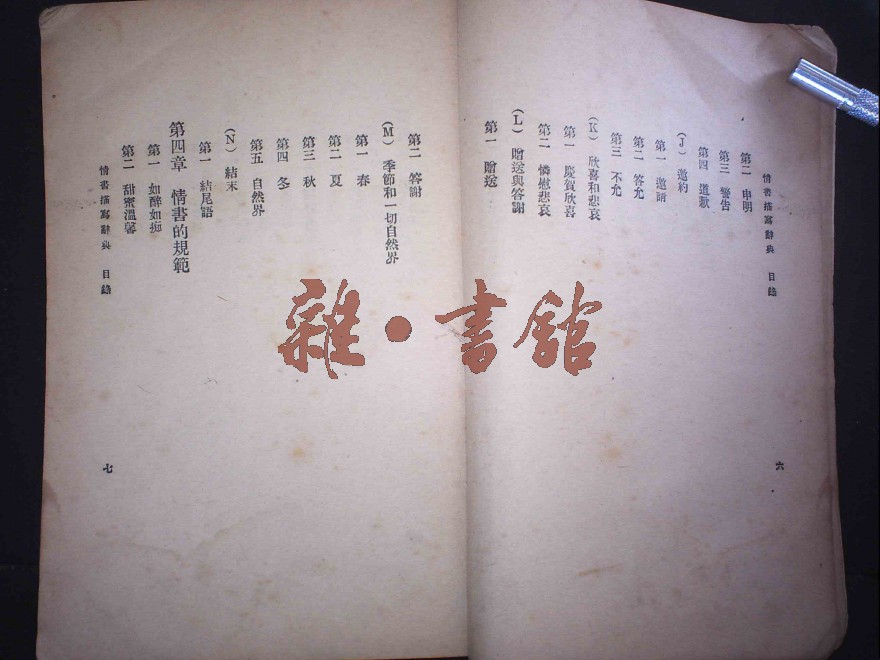 情書描寫辭典 目錄
六
第二 申明
第三 警告
第四 道歉
(J) 邀約
第一 邀請
第二 答允
第三 不允
(K) 欣喜和悲哀
第一 慶賀欣喜
第二 憐慰悲哀
(L) 贈送與答謝
第一 贈送
第二 答謝
(M) 季節和一切自然界
第一 春
第二 夏
第三 秋
第四 冬
第五 自然界
(N) 結末
第一 結尾語
第四章 情書的規範
第一 如醉如痴
第二 甜蜜溫馨
情書描寫辭典 目錄
七
雜•書館